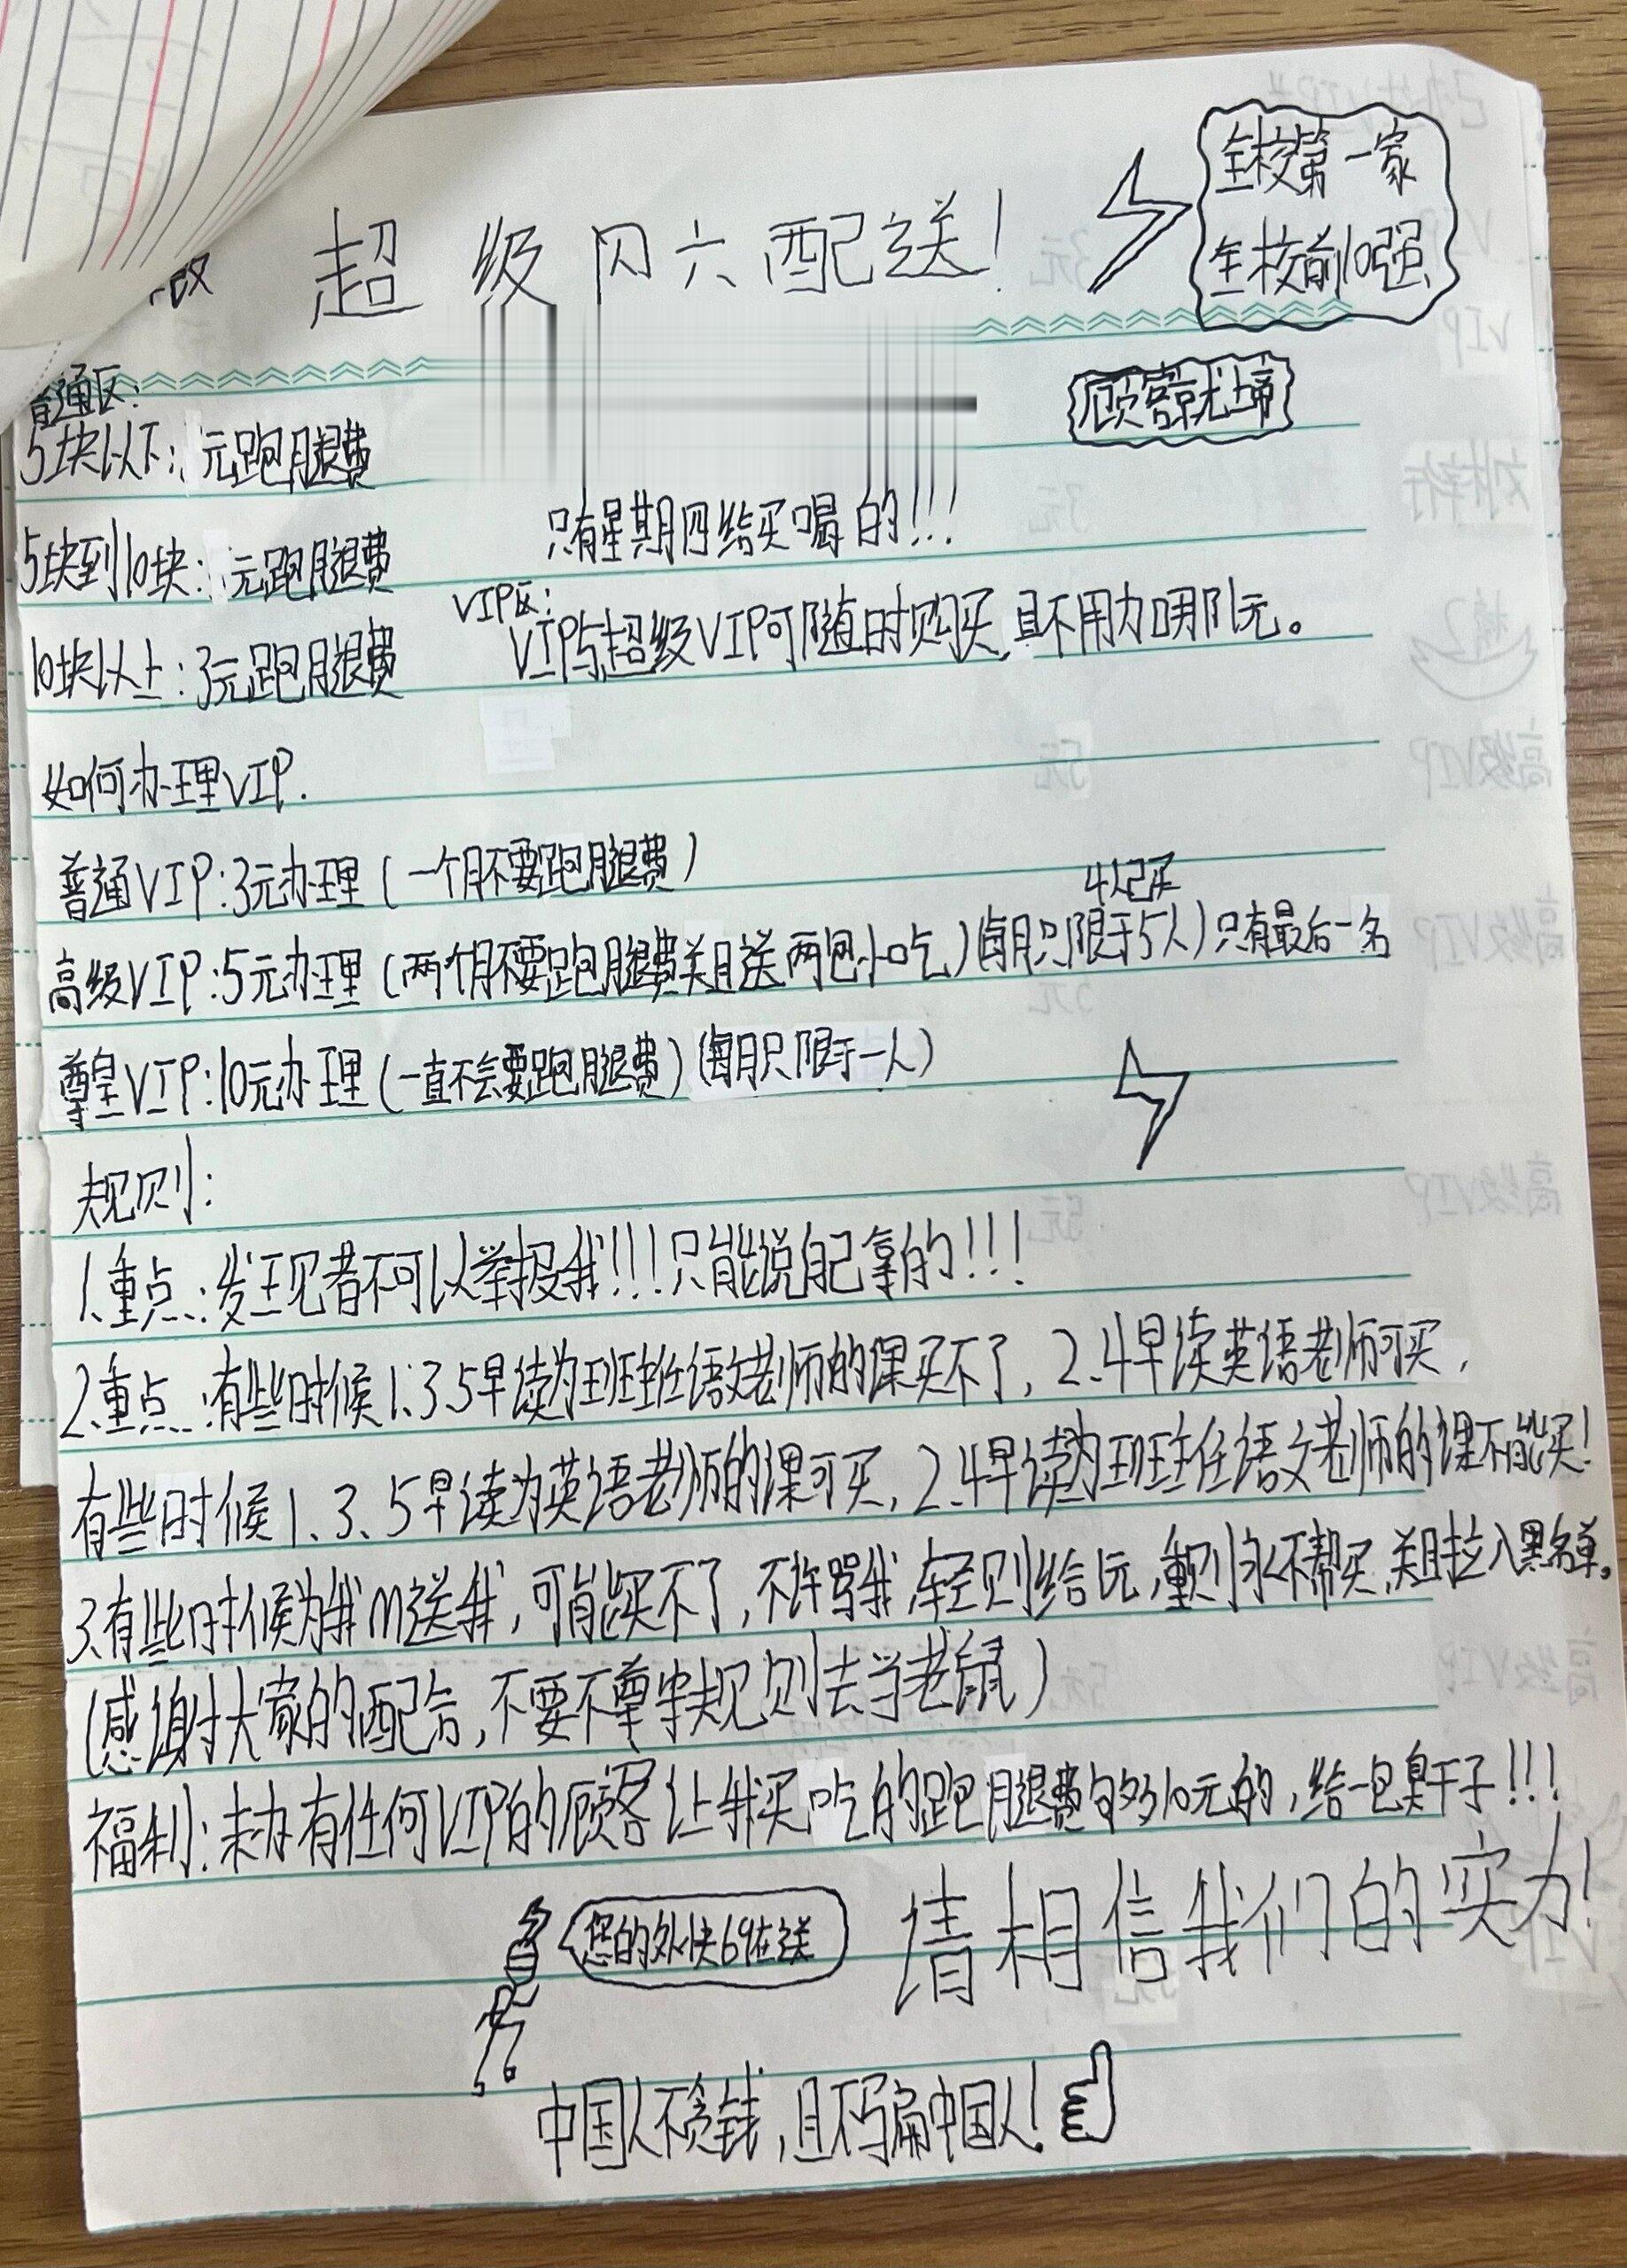 全校第一家
全校前10强
改 超级闪六配送!
顾客就是上帝
普通区:
5块以下: 元跑腿费
5块到10块: 元跑腿费
只有星期四给买喝的!!!
VIP区:
VIP与超级VIP可随时购买,且不用加那1元。
10块以上:3元跑腿费
如何办理VIP.
普通VIP:3元办理(一个月不要跑腿费)
4人已买
高级VIP:5元办理(两个月不要跑腿费,并且送两包小吃)(每月只限于5人)只有最后一名
尊皇VIP:10元办理(一直不会要跑腿费)(每月只限于一人)
规则:
1、重点:发现者不可以举报我!!!只能说自己拿的!!!
2、重点:有些时候1.3.5早读为班主任语文老师的课买不了,2、4早读英语老师可买,
有些时候1、3、5早读为英语老师的课可买,2、4早读为班主任语文老师的课不能买!
3、有些时候为我m送我,可能买不了,不许骂我,轻则给1元,重则永不帮买,并且拉入黑名单。
(感谢大家的配合,不要不尊守规则去当老鼠)
福利:未办有任何VIP的顾客让我买吃的跑腿费够多10元的,给一包臭干子!!!
您的外快69在送
请相信我们的实力!
中国人不贪钱,且不骗中国人!
3元
VIP
VIP
3元
高级VIP
5元
高级VIP
5元
高级VIP
5元
高级VIP
5元